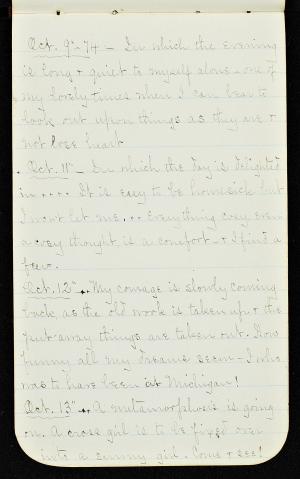 Oct. 9th - 74 - In which the evening
is long & quiet to myself alone - one of
my lovely times when I can bear to
look out upon things as they are &
not lose heart
Oct. 11th - In which the day is delighted
in .... It is easy to be homesick but
I wont let me ... Everything cozy even
a cozy thought is a comfort - & I find a
few.
Oct. 12th - My courage is slowly coming
back, as the old work is taken up & the
put-away things are taken out. How
funny all my dreams seem - I who
was to have been at Michigan!
Oct. 13th - A metamorphosis is going
on. A cross girl is to be fixed over
into a sunny girl. Come & see!